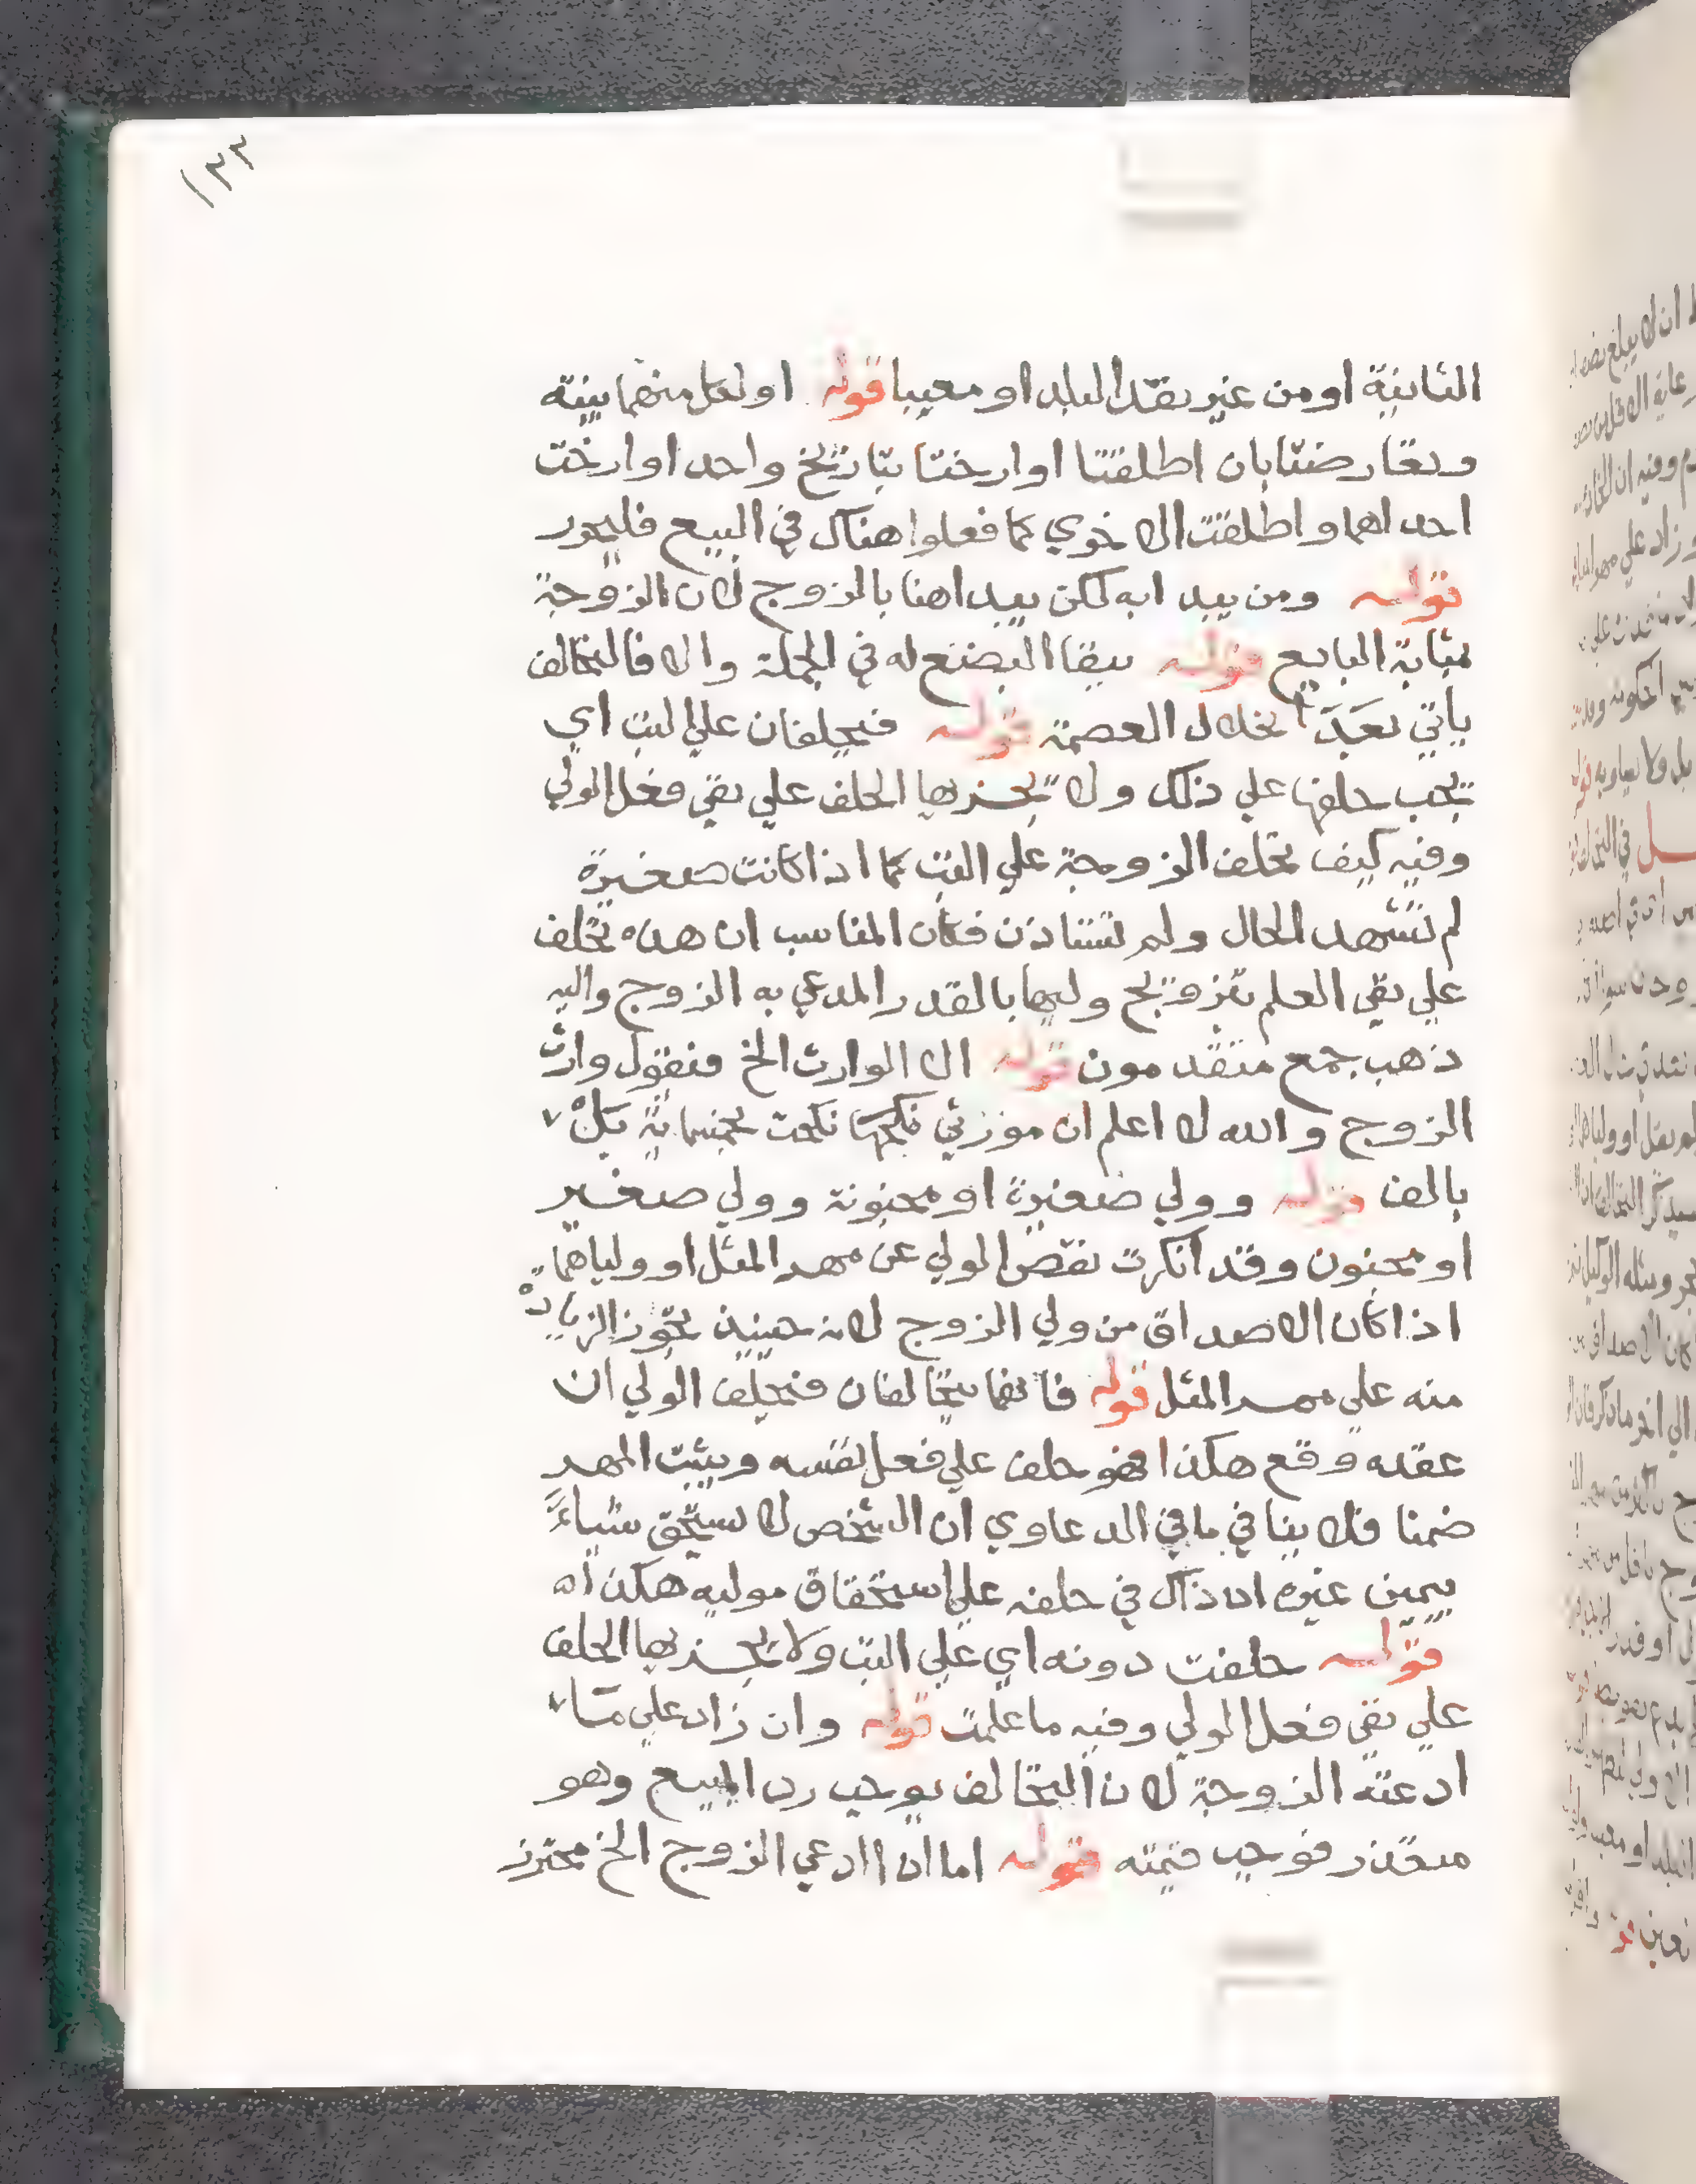 ١٣٣
الثانية او من غير نقد البلد او معيبا قوله او لكل منهما بينة
وتعارضتا بان اطلقتا او ارختا بتاريخ واحد او ارخت
احداهما واطلقت الاخري كما فعلوا هناك في البيع فليحرر
قوله ومن يبدا به لكن يبدا هنا بالزوج لان الزوجة
بمثابة البايع قوله ببقا البضع له في الجملة والا فالتخالف
ياتي بعد انحلال العصمة قوله فيحلفان علي البت اي
يجب حلفها علي ذلك ولا يجزيها الحلف علي نفي فعل الولي
وفيه كيف تحلف الزوجة علي البت كما اذا كانت صغيرة
لم تشهد الحال ولم تستاذن فكان المناسب ان هذه تحلف
علي نفي العلم بتزويج وليها بالقدر المدعي به الزوج واليه
ذهب جمع متقدمون قوله الا الوارث الخ فيقول وارث
الزوج والله لا اعلم ان مورثي نكحها نكحت بخمسماية بل
بالف قوله وولي صغيرة او مجنونة وولي صغير
او مجنون وقد انكرت نقص الولي عن مهر المثل او ولياهما
اذا كان الاصداق من ولي الزوج لانه حينيذ تجوز الزيادة
منه علي مهر المثل قوله فانهما يتخالفان فيحلف الولي ان
عقده وقع هكذا فهو حلف علي فعل نفسه ويثبت المهر
ضمنا فلا ينافي ما في الدعاوي ان الشخص لا يستحق شياء
بيمين غيره اذ ذاك في حلفه علي استحقاق موليه هكذا اه
قوله حلفت دونه اي علي البت ولا يجزيها الحلف
علي نفي فعل الولي وفيه ما علمت قوله وان زاد علي ما
ادعته الزوجة لان التخالف يوجب رد المبيع وهو
متعذر فوجب قيمته قوله اما اذا ادعي الزوج الخ محترز